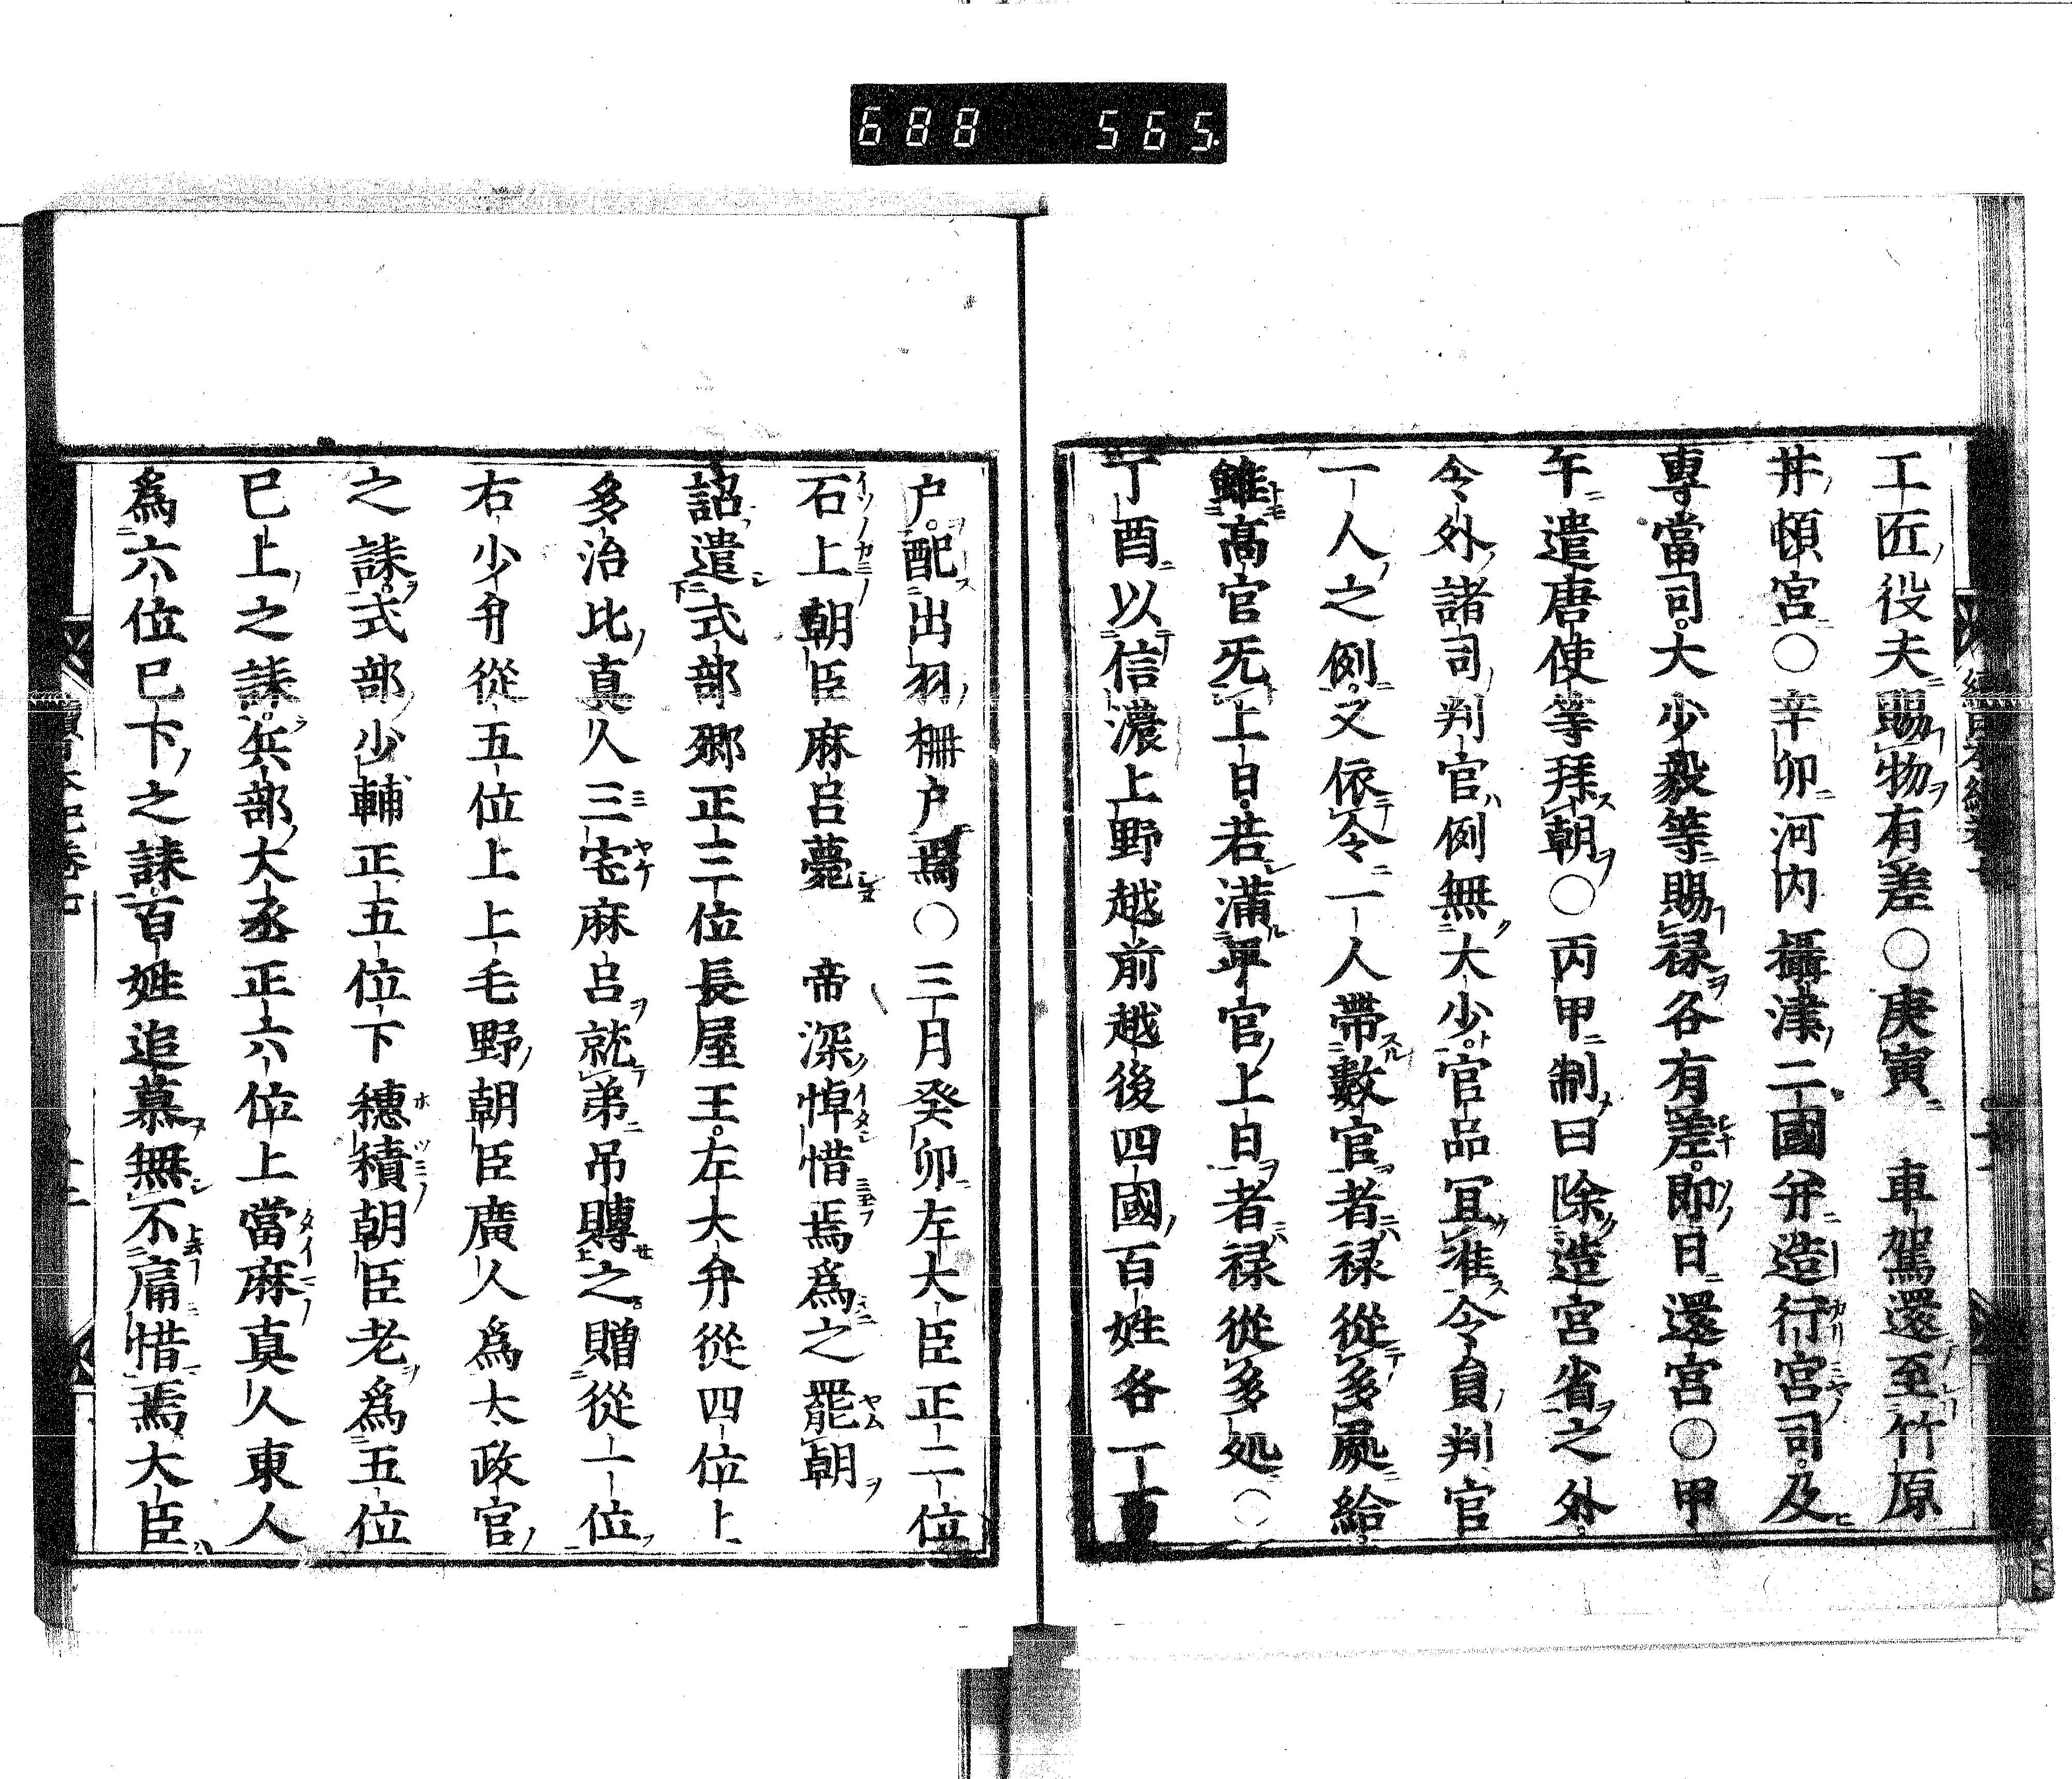 688 565.
工匠役夫賜物有差〇庚寅 車駕還至竹原
井頓宮〇辛卯河内攝津二國并造行宮司及
專當司大少毅等賜禄各有差即日還宮〇甲
午遣唐使等拜朝〇丙申制曰除造宮省之外
令外諸司判官例無大少官品冝准令員判官
一人之例又依令一人帶數官者禄從多處給
雖高官旡上日若滿卑官上日者禄從多処〇
丁酉以信濃上野越前越後四國百姓各一百
户配出羽柵户焉〇三月癸卯左大臣正二位
石上朝臣麻呂薨 帝深悼惜焉爲之罷朝
詔遣式部卿正三位長屋王左大弁從四位上
多治比真人三宅麻呂就第吊賻之贈從一位
右少弁從五位上上毛野朝臣廣人爲太政官
之誄式部少輔正五位下穗積朝臣老爲五位
已上之誄兵部大丞正六位上當麻真人東人
爲六位已下之誄百姓追慕無不痛惜焉大臣